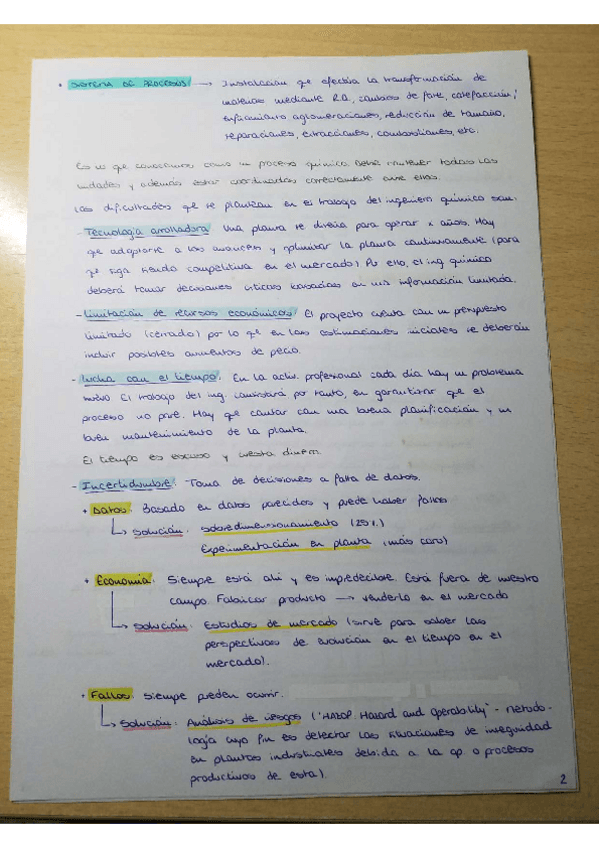 • SISTEMA DE PROCESOS → Instalación que efectúa la transformación de
materias mediante R.Q., cambios de fase, calefacción/
enfriamiento aglomeraciones, reducción de tamaño,
reparaciones, extracciones, combustiones, etc.
Es lo que conocemos como un proceso químico. Debe mantener todas las
unidades y además estar coordinadas correctamente entre ellas.
Las dificultades que se plantean en el trabajo del ingeniero químico son:
- Tecnología arrolladora. Una planta se diseña para operar x años. Hay
que adaptarse a los avances y optimizar la planta continuamente (para
que siga siendo competitiva en el mercado). Por ello, el ing químico
deberá tomar decisiones críticas basadas en una información limitada.
- Limitación de recursos económicos. El proyecto cuenta con un presupuesto
limitado (cerrado) por lo que en las estimaciones iniciales se deberán
incluir posibles aumentos de precio.
- Lucha con el tiempo. En la activ. profesional cada día hay un problema
nuevo. El trabajo del ing. consistirá por tanto, en garantizar que el
proceso no pare. Hay que contar con una buena planificación y un
buen mantenimiento de la planta.
El tiempo es escaso y cuesta dinero.
- Incertidumbre. Toma de decisiones a falta de datos.
+ Datos. Basado en datos parecidos y puede haber fallos
↳ Solución: Sobredimensionamiento (25%)
Experimentación en planta (más caro)
+ Economía. Siempre está ahí y es impredecible. Está fuera de nuestro
campo. Fabricar producto → venderlo en el mercado
↳ Solución: Estudios de mercado (sirve para saber las
perspectivas de evolución en el tiempo en el
mercado).
+ Fallos. Siempre pueden ocurrir.
↳ Solución: Análisis de riesgos ("HAZOP. Hazard and Operability" - metodo-
logía cuyo fin es detectar las situaciones de inseguridad
en plantas industriales debida a la op. o procesos
productivos de esta).
2